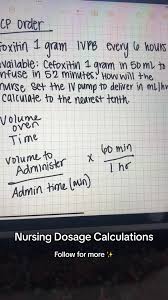 CP Order
foxitin 1 gram IVPB every 6 hours
vailable: Cefoxitin 1 gram in 50 mL to
nfuse in 52 minutes. How will the
nurse set the IV pump to deliver in mL/hr
Calculate to the nearest tenth.
Volume
over
Time
volume to
Administer x 60 min
1 hr
Admin time (min)
Nursing Dosage Calculations
Follow for more ✨